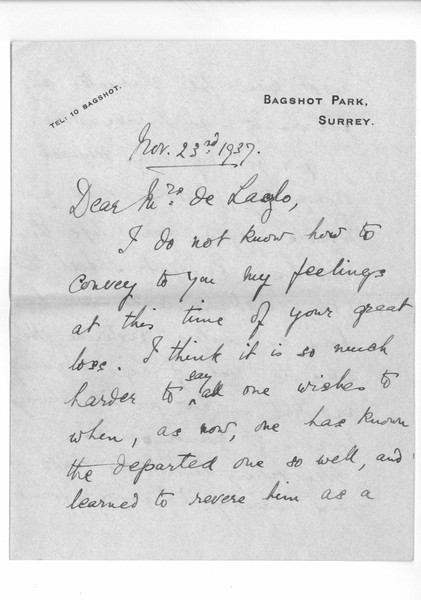 TEL: 10 BAGSHOT.
BAGSHOT PARK,
SURREY.
Nov. 23rd 1937.
Dear Mrs. de Laszlo,
I do not know how to
convey to you my feelings
at this time of your great
loss. I think it is so much
harder to say all one wishes to
when, as now, one has known
the departed one so well, and
learned to revere him as a